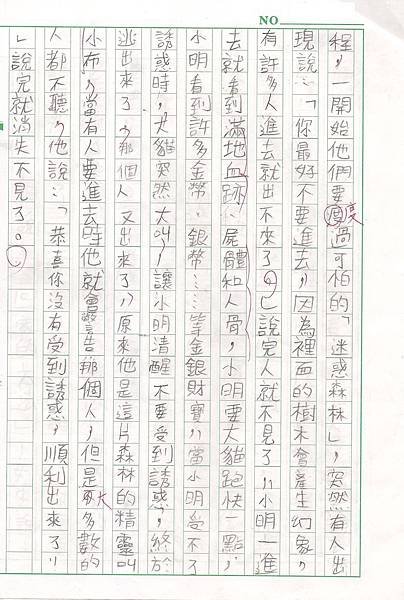 NO
程，一開始他們要度過可怕的「迷惑森林」，突然有人出
現說：「你最好不要進去，因為裡面的樹木會產生幻象，
有許多人進去就出不來了。」說完人就不見了，小明一進
去就看到滿地血跡、屍體和人骨，小明要大貓跑快一點，
小明看到許多金幣、銀幣……等金銀財寶，當小明受不了
誘惑時，大貓突然大叫，讓小明清醒不要受到誘惑，終於
逃出來了，那個人又出來了，原來他是這片森林的精靈叫
小布，當有人要進去時他就會警告那個人，但是大多數的
人都不聽，他說：「恭喜你沒有受到誘惑，順利出來了！
」說完就消失不見了。